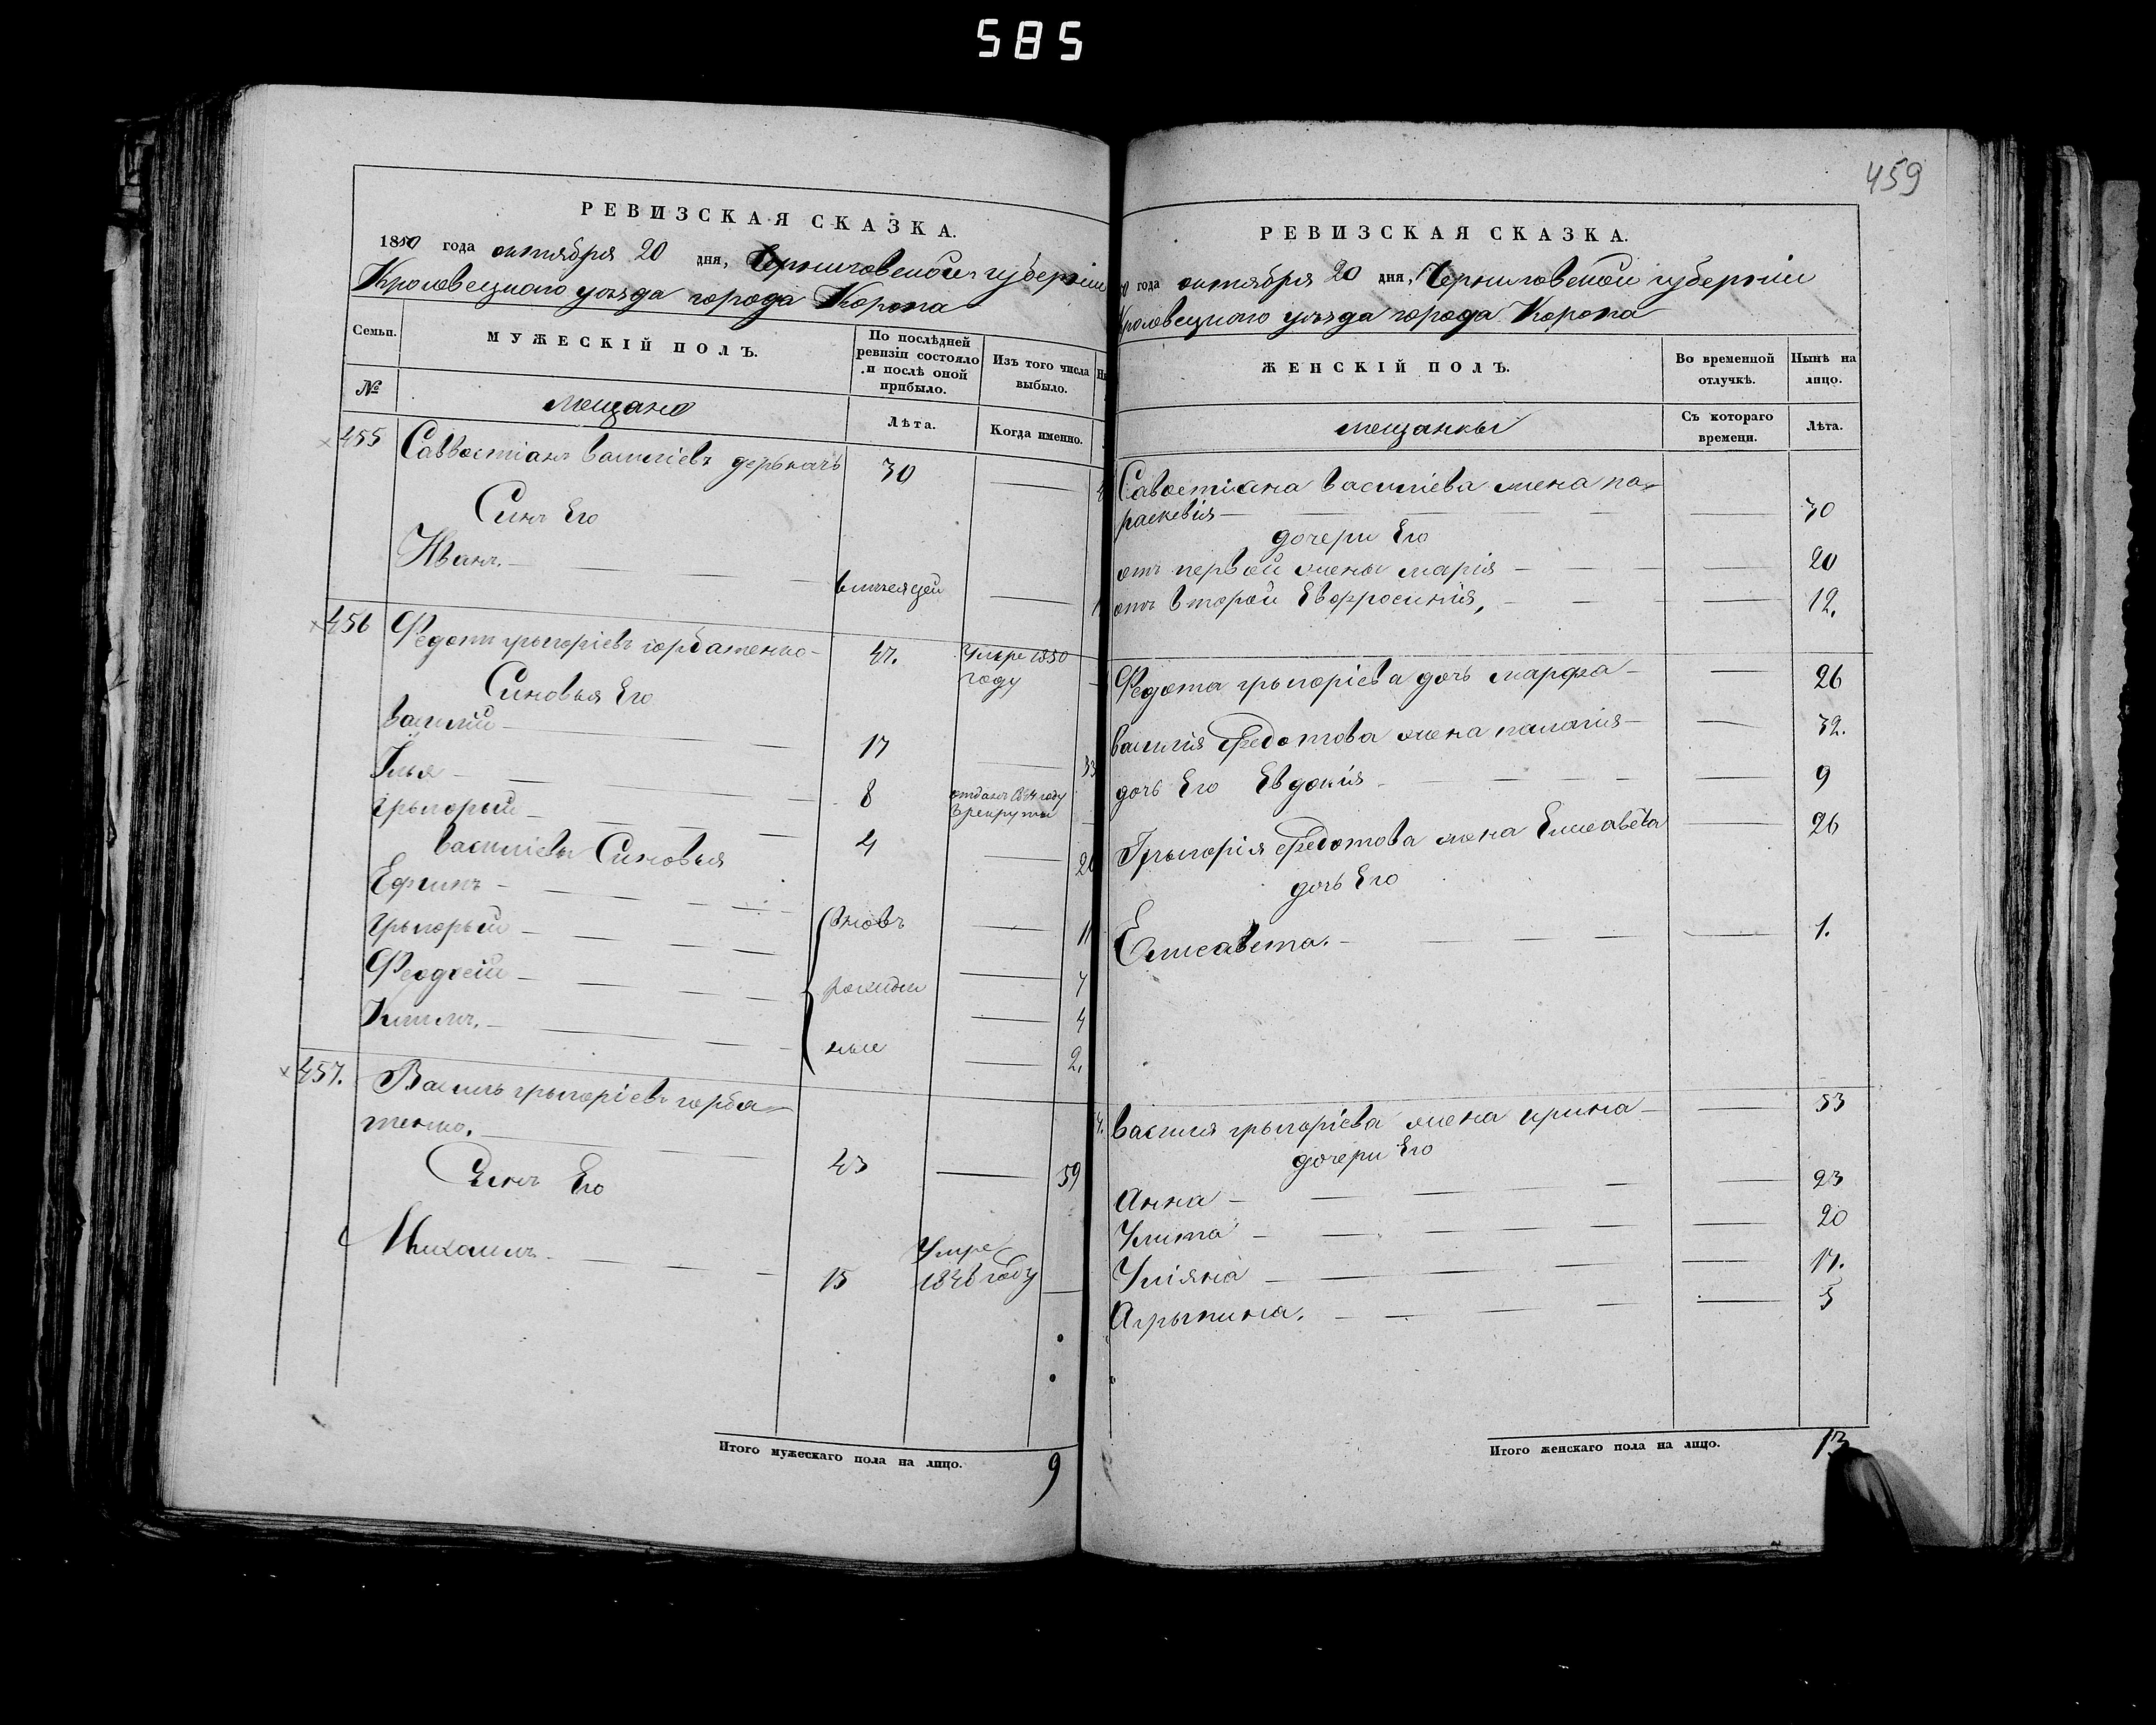 585
РЕВИЗСКАЯ СКАЗКА.
1850 года октября 20 дня, Черниговской губерніи
Кролевецкого уезда города Коропа
Семьи.
МУЖЕСКІЙ ПОЛЪ.
По послѣдней ревизіи состояло и послѣ оной прибыло.
Изъ того числа выбыло.
№
мещане
Лѣта.
Когда именно.
455 Савостіанъ василіевъ деркачъ 30
Синъ Его
Иванъ.
456 Федотъ грыгоріевъ горбатенко 47. Умре 1850 году
Синовья Его
василий 17 33
Ілья 8 отданъ году в рекруты
грыгорый 4 20
василіевы Синовья
Ефимъ вновь 11
грыгорый 7
Феодосій рожден 4
Климъ. ные 2.
457. Василь грыгоріевъ горба-
тенко. 43 59
Синъ Его
Михаилъ 15 Умре 1846 году
Итого мужескаго пола на лицо. 9
459
РЕВИЗСКАЯ СКАЗКА.
года октября 20 дня, Черниговской губерніи
Кролевецкого уезда города Коропа
ЖЕНСКІЙ ПОЛЪ.
Во временной отлучкѣ.
Нынѣ на лицо.
мещанки
Съ котораго времени.
Лѣта.
Савостіана василіева жена па-
раскевія 30
дочери Его
отъ первой жены марія 20
отъ второй Евфросинія, 12.
Федота грыгоріева дочь марфа 26
василія Федотова жена палагія 32.
дочь Его Евдокія 9
Грыгорія Федотова жена Елисавета 26
дочь Его
Елисавета. 1.
василя грыгоріева жена ирина 53
дочери Его
Анна 23
Улита 20
Уліяна 17.
Агрыпина. 5
Итого женскаго пола на лицо. 13